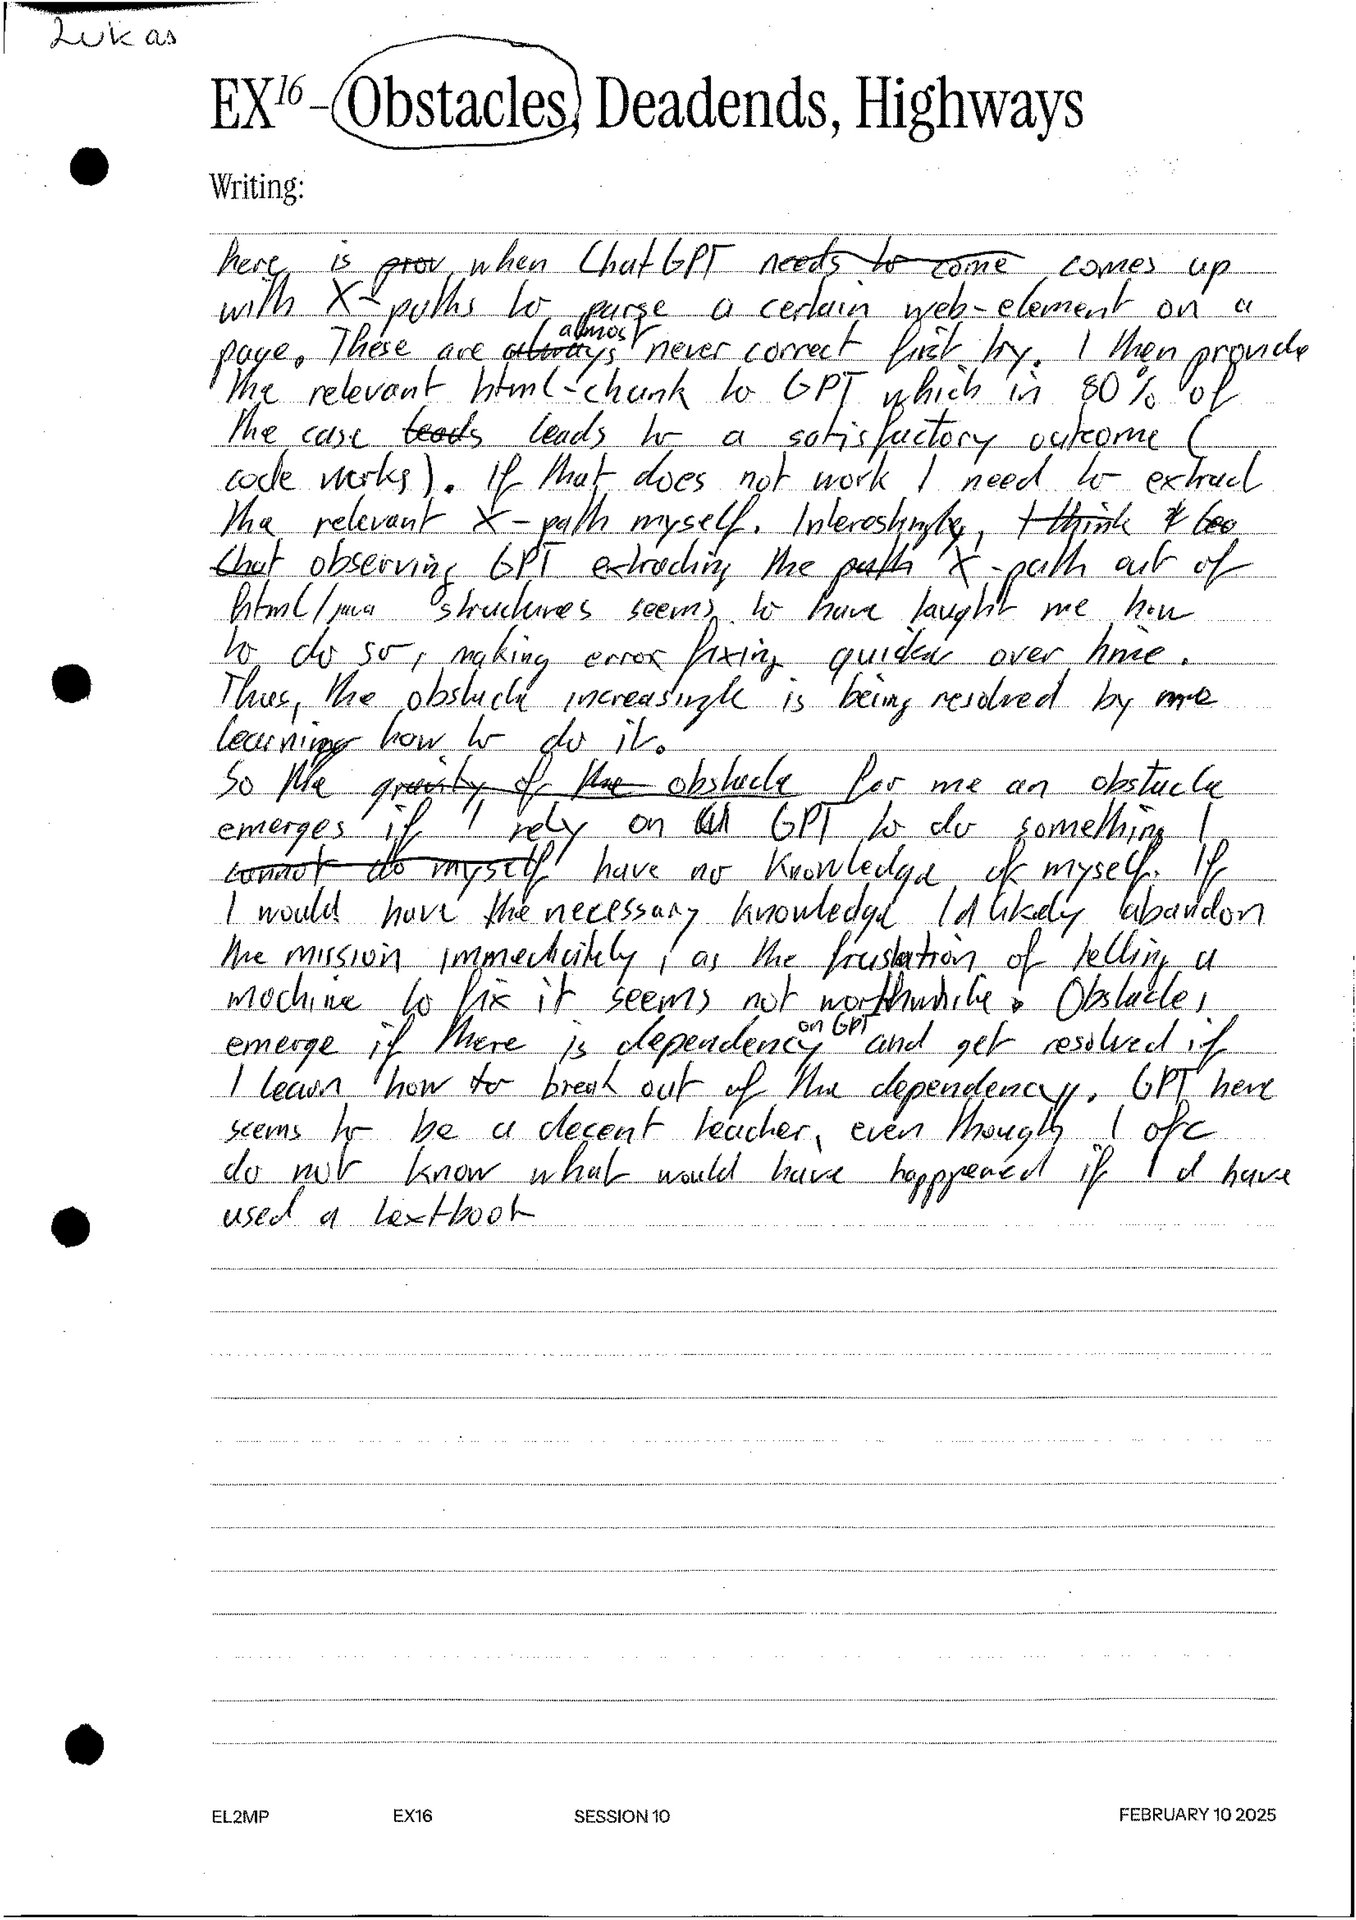 Lukas
EX16 – Obstacles, Deadends, Highways
Writing:
here is prov when ChatGPT needs to come comes up
with X-paths to parse a certain web-element on a
page. These are always almost never correct first try. I then provide
the relevant html-chunk to GPT which in 80% of
the case leads leads to a satisfactory outcome (
code works). If that does not work I need to extract
the relevant X-path myself. Interestingly, I think
Chat observing GPT extracting the path X-path out of
html/java structures seems to have taught me how
to do so, making error fixing quicker over time.
Thus, the obstacle increasingly is being resolved by me
learning how to do it.
So the gravity of the obstacle for me an obstacle
emerges if I rely on GPT to do something I
cannot do myself have no knowledge of myself. If
I would have the necessary knowledge I'd likely abandon
the mission immediately, as the frustation of telling a
machine to fix it seems not worthwhile. Obstacles
emerge if there is dependency on GPT and get resolved if
I learn how to break out of the dependency. GPT here
seems to be a decent teacher, even though I ofc
do not know what would have happpened if I'd have
used a textbook
EL2MP EX16 SESSION 10 FEBRUARY 10 2025